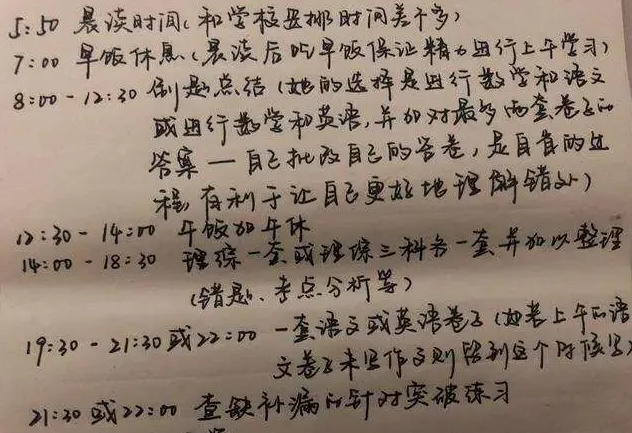 5:50 晨读时间(和学校安排时间差不多)
7:00 早饭休息(晨读后吃早饭保证精力进行上午学习)
8:00-12:30 刷题总结(她的选择是进行数学和语文
或进行数学和英语,并加对最多两套卷子的
答案—自己批改自己的答卷,是自省的过
程,有利于让自己更好地理解错处)
12:30-14:00 午饭加午休
14:00-18:30 理综一套或理综三科各一套并加以整理
(错题、考点分析等)
19:30-21:30或22:00 一套语文或英语卷子(如果上午的语
文卷子未写作文则留到这个时候写)
21:30或22:00 查缺补漏的针对突破练习